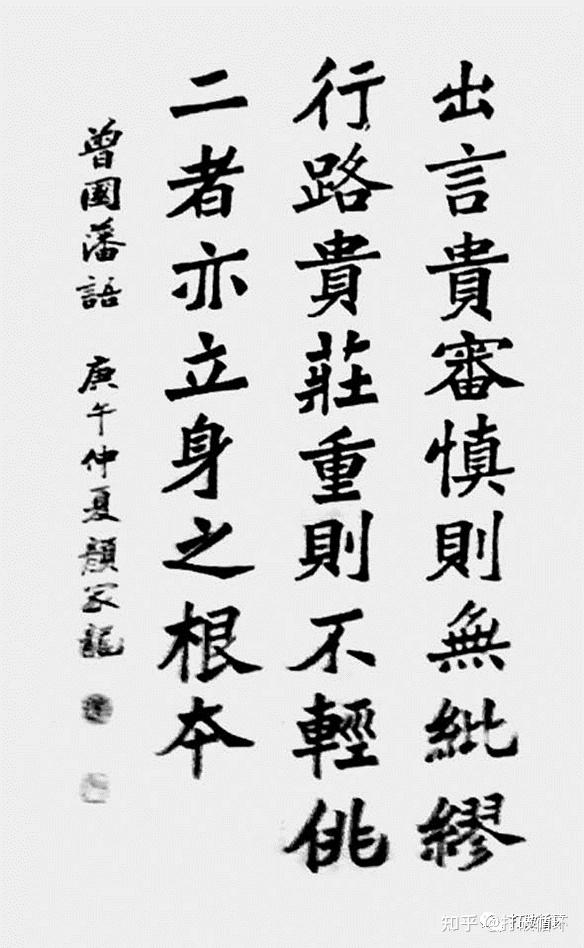 出言貴審慎則無紕繆
行路貴莊重則不輕佻
二者亦立身之根本
曾國藩語 庚午仲夏顏家龍
知乎 @打破循环